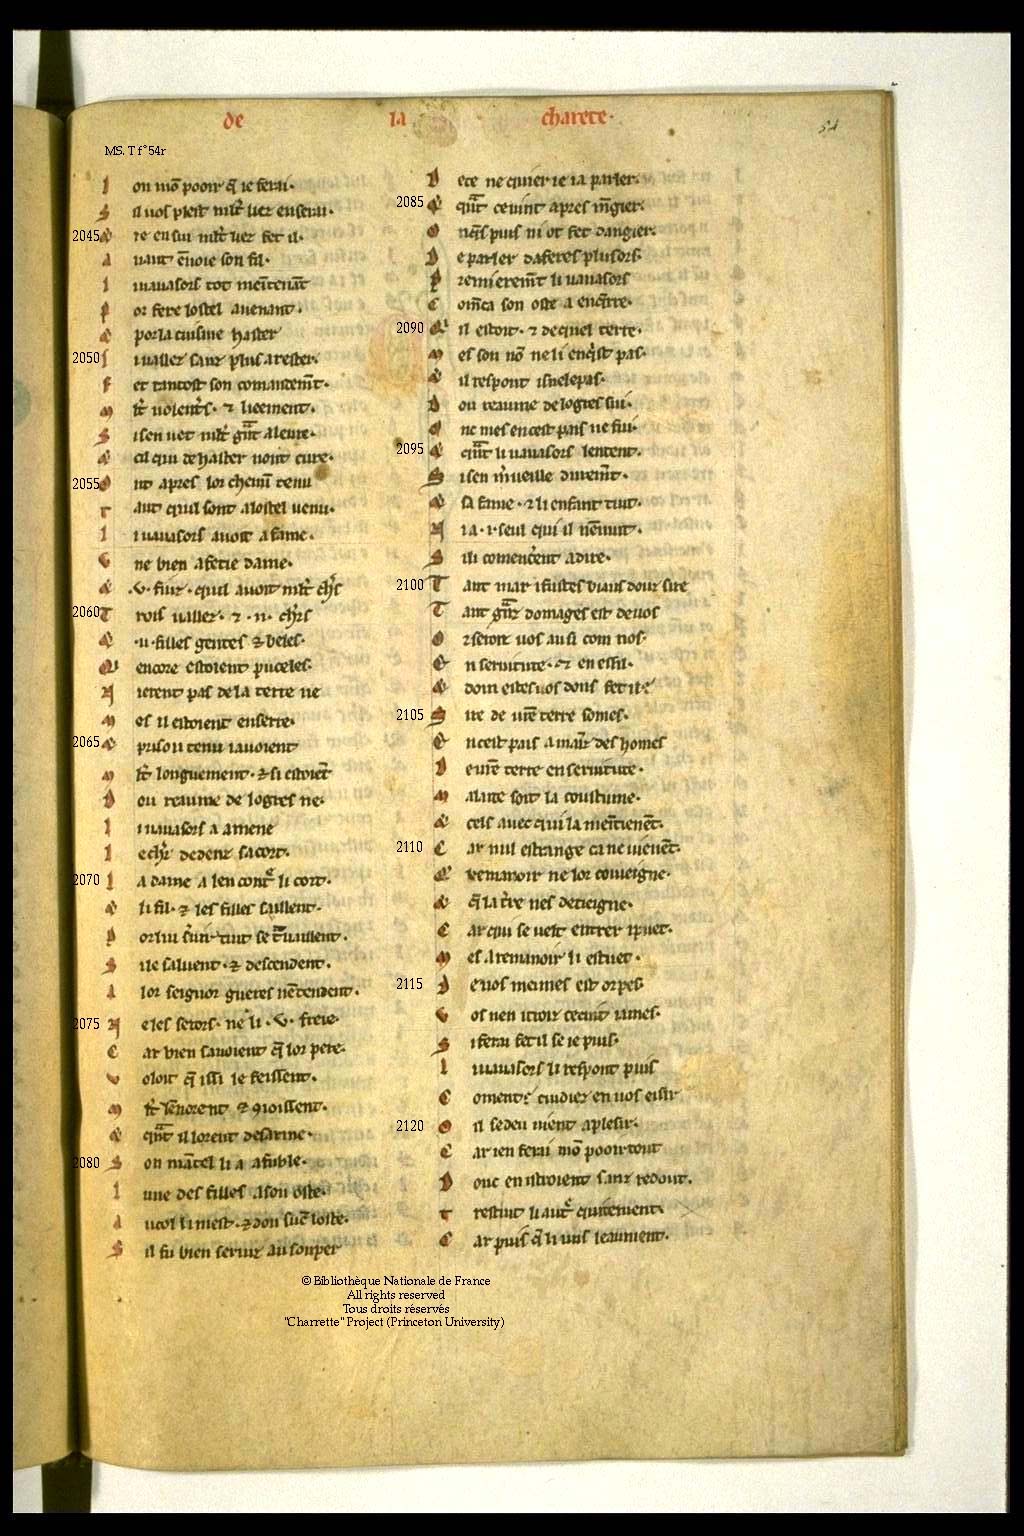 de la charete·
54
MS. T f°54r
I on mō pooir q̄ ie ferai·
S il uos plest mlt̄ uez enserai·
2045 & re en sui mlt̄ liez fet il·
A uant ēuoie son fil·
L i uauasors tot meīten̄at
P or fere lostel auenant·
& por la cuisine haster
2050 L i uallez sanz plus arester·
F et tantost son comandem̄t·
M lt̄ uolent̄s· ⁊ lieement·
S i sen uet mlt̄ ḡnt aleure·
& cil qui de haster nont cure·
2055 O nt apres lor chemī tenu
T ant quil sont a lostel uenu·
L i uauasors auoit a fame·
V ne bien afetie dame·
& ·v· fiuz· quil auoit mlt̄ ch̄s
2060 T rois uallez· ⁊ ·ii· ch̄rs
& ·ii· filles gentes & beles·
Q' encore estoient puceles·
N ierent pas de la terre ne
M es il estoient enserre·
2065 & prison tenu i auoient
M lt̄ longuement· & si estoiēt
D ou reaume de logres ne·
L i uauasors a amene
L e ch̄r dedenz sa cort·
2070 L a dame a lencont̄e li cort·
& li fil· & les filles saillent·
P or lui s̄uir tuit se t̄uaillent·
S i le saluent· & descendent·
A lor seignor gueres nētendent·
2075 N e les serors· ne li ·v· frere·
C ar bien sauoient q̄ lor pere·
V oloit q̄ issi le feissent·
M lt̄ lēnorent & 9ioissent·
& q̄nt il lorent desarme·
2080 S on mātel li a afuble·
L une des filles a son oste·
A u col li mest· & dou suē loste·
S il fu bien seruiz au souper
D ece ne quier ie ia parler·
2085 & q̄nt ce uint apres m̄gier·
O ncȝ puis ni ot fet dangier·
D e parler daferes plusors·
P remierem̄t li uauasors
C omēca son oste a enq̄rre·
2090 Q' il estoit· ⁊ de quel terre·
M es son nō ne li enq̄st pas·
& il respont isnelepas·
D ou reaume de logres sui·
O nc mes en cest pais ne fui·
2095 & q̄nt li uauasors lentent·
S i sen m̄ueille durem̄t·
& sa fame· ⁊ li enfant tuit·
N i a ·i· seul qui il nēnuit·
S i li comencēt a dire·
2100 T ant mar i fustes biaus douz sire
T ant ḡnz domages est de uos
O r seroiz uos ausi com nos·
E n seruitute· ⁊ en essil·
& dom estes uos dons fet il·
2105 S ire de ur̄e terre somes·
E n cest pais a maīz des homes
D e ur̄e terre en seruitute·
M aleoite soit la coustume·
& cels auec qui la meītienēt·
2110 C ar nul estrange ca ne uienēt·
Q' remanoir ne lor coueigne·
& q̄ la t̄re nes detieigne·
C ar qui se uest entrer i puet·
M es a remanoir li estuet·
2115 D e uos meimes est or pes
V os nen istroiz ce cuit iames·
S i ferai fet il se ie puis·
L i uauasors li respont puis
C oment? cuidiez en uos eissir
2120 O il se deu uient a plesir·
C ar ien ferai mō pooir tout
D onc en istroient sanz redout·
T restuit li aut̄e quitement·
C ar puis q̄ li uns leaument·
© Bibliothèque Nationale de France
All rights reserved
Tous droits réservés
"Charrette" Project (Princeton University)